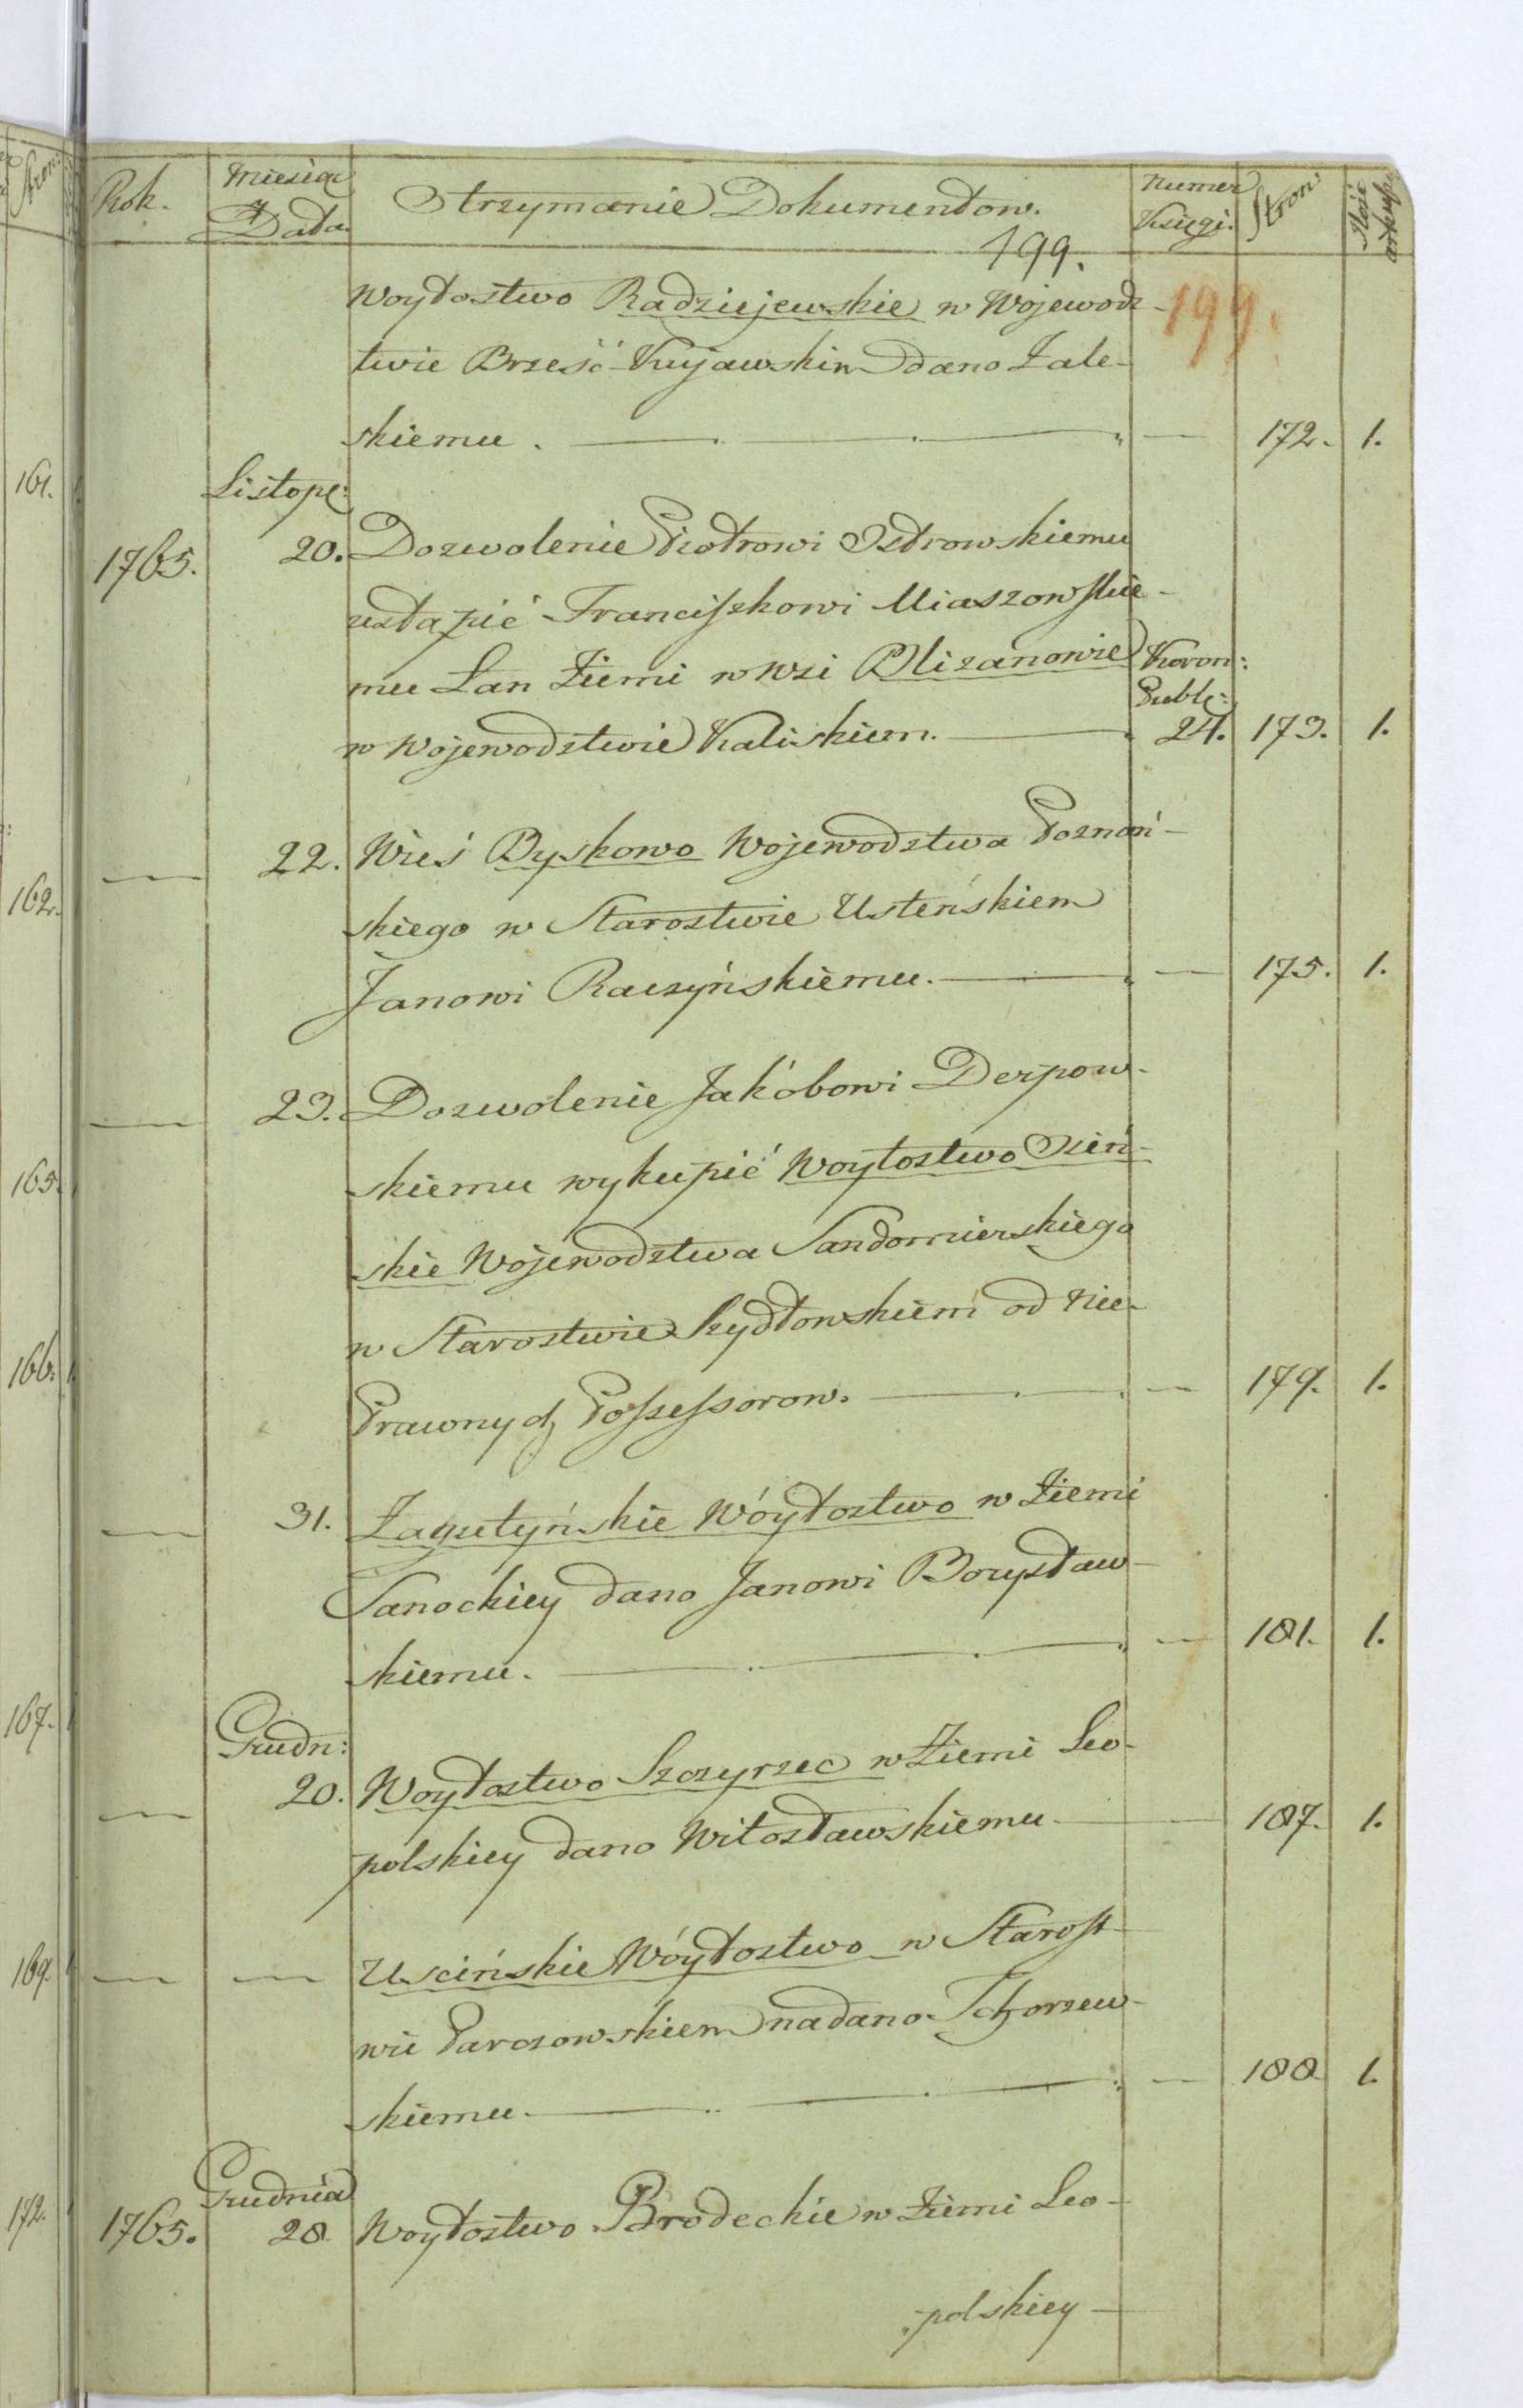 Rok. Miesiąc Otrzymanie Dokumentow. Numer Stron: Ilość
Data. Księgi. arkusz:
199.
199.
Woytostwo Radziejewskie w Wojewodz-
twie Brześć-Kujawskim dano Zale-
skiemu. — 172. 1.
Listop:
1765. 20. Dozwolenie Piotrowi Ostrowskiemu
ustąpić Franciszkowi Miaszowskie-
mu Łan Ziemi w wsi Blizanowie Koron:
Publ:
w Wojewodztwie Kaliskiem. 24. 173. 1.
— 22. Wieś Byskowo Wojewodztwa Poznań-
skiego w Starostwie Usteńskiem
Janowi Raczyńskiemu. — 175. 1.
— 23. Dozwolenie Jakóbowi Derpow-
skiemu wykupić Woytostwo Osień-
skie Wojewodztwa Sandomierskiego
w Starostwie Szydłowskiem od Nie-
Prawnych Possessorow. — 179. 1.
— 31. Zagutyńskie Wóytostwo w Ziemi
Sanockiey dano Janowi Borysław-
skiemu. — 181. 1.
Grudn:
— 20. Woytostwo Szczyrzec w Ziemi Leo-
polskiey dano Witosławskiemu. — 187. 1.
— — Uscińskie Wóytostwo w Starost-
wie Parczowskiem nadano Tchorzew-
skiemu. — 188 1.
Grudnia
1765. 28 Woytostwo Brodeckie w Ziemi Leo-
polskiey
161.
162.
165.
166.
167.
169.
172.